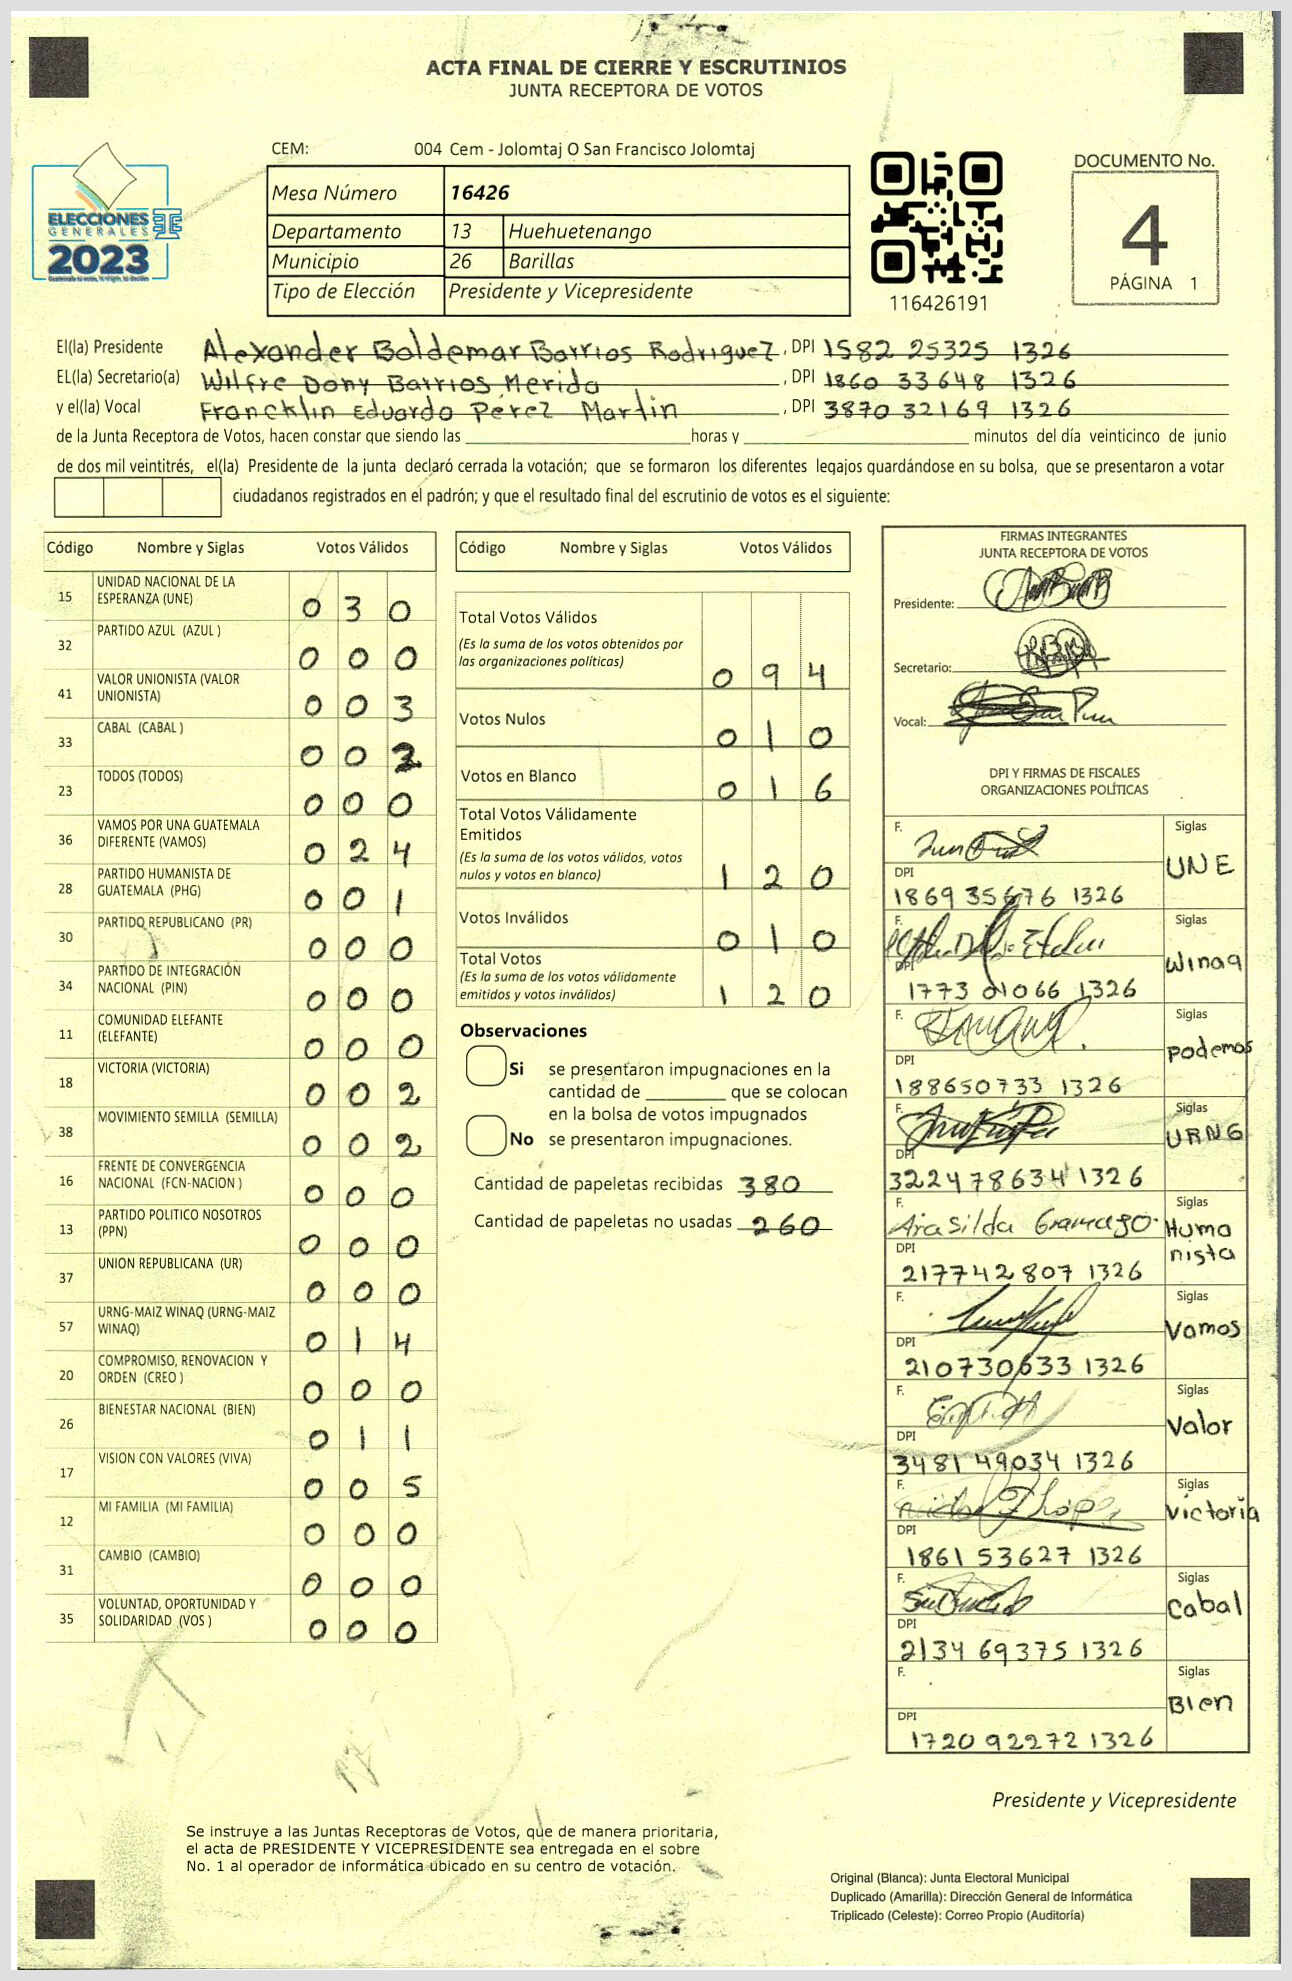 ACTA FINAL DE CIERRE Y ESCRUTINIOS
JUNTA RECEPTORA DE VOTOS
CEM: 004 Cem - Jolomtaj O San Francisco Jolomtaj
ELECCIONES
GENERALES
2023
Mesa Número 16426
Departamento 13 Huehuetenango
Municipio 26 Barillas
Tipo de Elección Presidente y Vicepresidente
116426191
DOCUMENTO No.
4
PÁGINA 1
El(la) Presidente Alexander Baldemar Barrios Rodriguez, DPI 1582 25325 1326
EL(la) Secretario(a) Wilfre Dony Barrios Merida, DPI 1860 33648 1326
y el(la) Vocal Francklin Eduardo Pérez Martin, DPI 3870 32169 1326
de la Junta Receptora de Votos, hacen constar que siendo las horas y minutos del día veinticinco de junio
de dos mil veintitrés, el(la) Presidente de la junta declaró cerrada la votación; que se formaron los diferentes legajos guardándose en su bolsa, que se presentaron a votar
ciudadanos registrados en el padrón; y que el resultado final del escrutinio de votos es el siguiente:
Código Nombre y Siglas Votos Válidos
15 UNIDAD NACIONAL DE LA
ESPERANZA (UNE) 0 3 0
32 PARTIDO AZUL (AZUL ) 0 0 0
41 VALOR UNIONISTA (VALOR
UNIONISTA) 0 0 3
33 CABAL (CABAL ) 0 0 2
23 TODOS (TODOS) 0 0 0
36 VAMOS POR UNA GUATEMALA
DIFERENTE (VAMOS) 0 2 4
28 PARTIDO HUMANISTA DE
GUATEMALA (PHG) 0 0 1
30 PARTIDO REPUBLICANO (PR) 0 0 0
34 PARTIDO DE INTEGRACIÓN
NACIONAL (PIN) 0 0 0
11 COMUNIDAD ELEFANTE
(ELEFANTE) 0 0 0
18 VICTORIA (VICTORIA) 0 0 2
38 MOVIMIENTO SEMILLA (SEMILLA) 0 0 2
16 FRENTE DE CONVERGENCIA
NACIONAL (FCN-NACION ) 0 0 0
13 PARTIDO POLITICO NOSOTROS
(PPN) 0 0 0
37 UNION REPUBLICANA (UR) 0 0 0
57 URNG-MAIZ WINAQ (URNG-MAIZ
WINAQ) 0 1 4
20 COMPROMISO, RENOVACION Y
ORDEN (CREO ) 0 0 0
26 BIENESTAR NACIONAL (BIEN) 0 1 1
17 VISION CON VALORES (VIVA) 0 0 5
12 MI FAMILIA (MI FAMILIA) 0 0 0
31 CAMBIO (CAMBIO) 0 0 0
35 VOLUNTAD, OPORTUNIDAD Y
SOLIDARIDAD (VOS ) 0 0 0
Código Nombre y Siglas Votos Válidos
Total Votos Válidos
(Es la suma de los votos obtenidos por
las organizaciones políticas) 0 9 4
Votos Nulos 0 1 0
Votos en Blanco 0 1 6
Total Votos Válidamente
Emitidos
(Es la suma de los votos válidos, votos
nulos y votos en blanco) 1 2 0
Votos Inválidos 0 1 0
Total Votos
(Es la suma de los votos válidamente
emitidos y votos inválidos) 1 2 0
Observaciones
Si se presentaron impugnaciones en la
cantidad de que se colocan
en la bolsa de votos impugnados
No se presentaron impugnaciones.
Cantidad de papeletas recibidas 380
Cantidad de papeletas no usadas 260
FIRMAS INTEGRANTES
JUNTA RECEPTORA DE VOTOS
Presidente:
Secretario:
Vocal:
DPI Y FIRMAS DE FISCALES
ORGANIZACIONES POLÍTICAS
F. Siglas
UNE
DPI
1869 35676 1326
F. Siglas
Winaq
DPI
1773 01066 1326
F. Siglas
podemos
DPI
188650733 1326
F. Siglas
URNG
DPI
3224 78634 1326
F. Siglas
Huma
nista
DPI
217742807 1326
F. Siglas
Vamos
DPI
210730633 1326
F. Siglas
Valor
DPI
3481 49034 1326
F. Siglas
Victoria
DPI
1861 53627 1326
F. Siglas
Cabal
DPI
2134 69375 1326
F. Siglas
Bien
DPI
1720 92272 1326
Presidente y Vicepresidente
Se instruye a las Juntas Receptoras de Votos, que de manera prioritaria,
el acta de PRESIDENTE Y VICEPRESIDENTE sea entregada en el sobre
No. 1 al operador de informática ubicado en su centro de votación.
Original (Blanca): Junta Electoral Municipal
Duplicado (Amarilla): Dirección General de Informática
Triplicado (Celeste): Correo Propio (Auditoría)